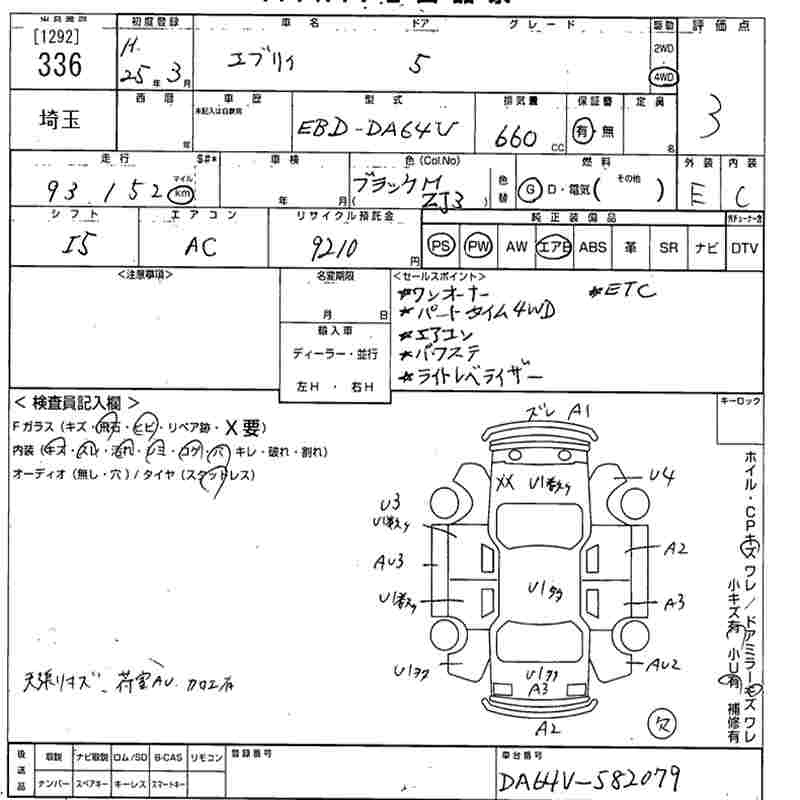 [1292]
336
埼玉
初度登録 車名 ドア グレード 駆動 評価点
H. 25年 3月 エブリィ 5 2WD
4WD
3
西暦 車歴 型式 排気量 保証書 定員
未記入は自家用
年 EBD-DA64V 660 CC 有・無 名
走行 S#* 車検 色(Col.No) 燃料 外装 内装
93,152 マイル km 年 月 (ブラックM ZJ3) 色替 G D・電気( その他 ) E C
シフト エアコン リサイクル預託金 純正装備品
I5 AC 9210円 PS PW AW エアB ABS 革 SR ナビ DTV
<注意事項> 名変期限 <セールスポイント>
月 日
輸入車
ディーラー・並行
左H ・ 右H
*ワンオーナー *ETC
*パートタイム4WD
*エアコン
*パワステ
*ライトレベライザー
キーロック
< 検査員記入欄 >
Fガラス(キズ・飛石・ヒビ・リペア跡・X要)
内装(キズ・スレ・汚れ・シミ・コゲ・穴・キレ・破れ・割れ)
オーディオ(無し・穴)/タイヤ(スタッドレス)
ズレ A1
XX U1
U4
U3
U1
A2
AU3
U1
U1
A3
U1
U1
A3
AU2
A2
欠
ホイル・CPキズ ワレ/ドアミラーキズ ワレ
小キズ有 小U有 補修有
天張りキズ、荷室AU. 加工有
後送品 取説 ナビ取説 ロム/SD B-CAS リモコン 登録番号 車台番号
ナンバー スペアキー キーレス スマートキー DA64V-582079